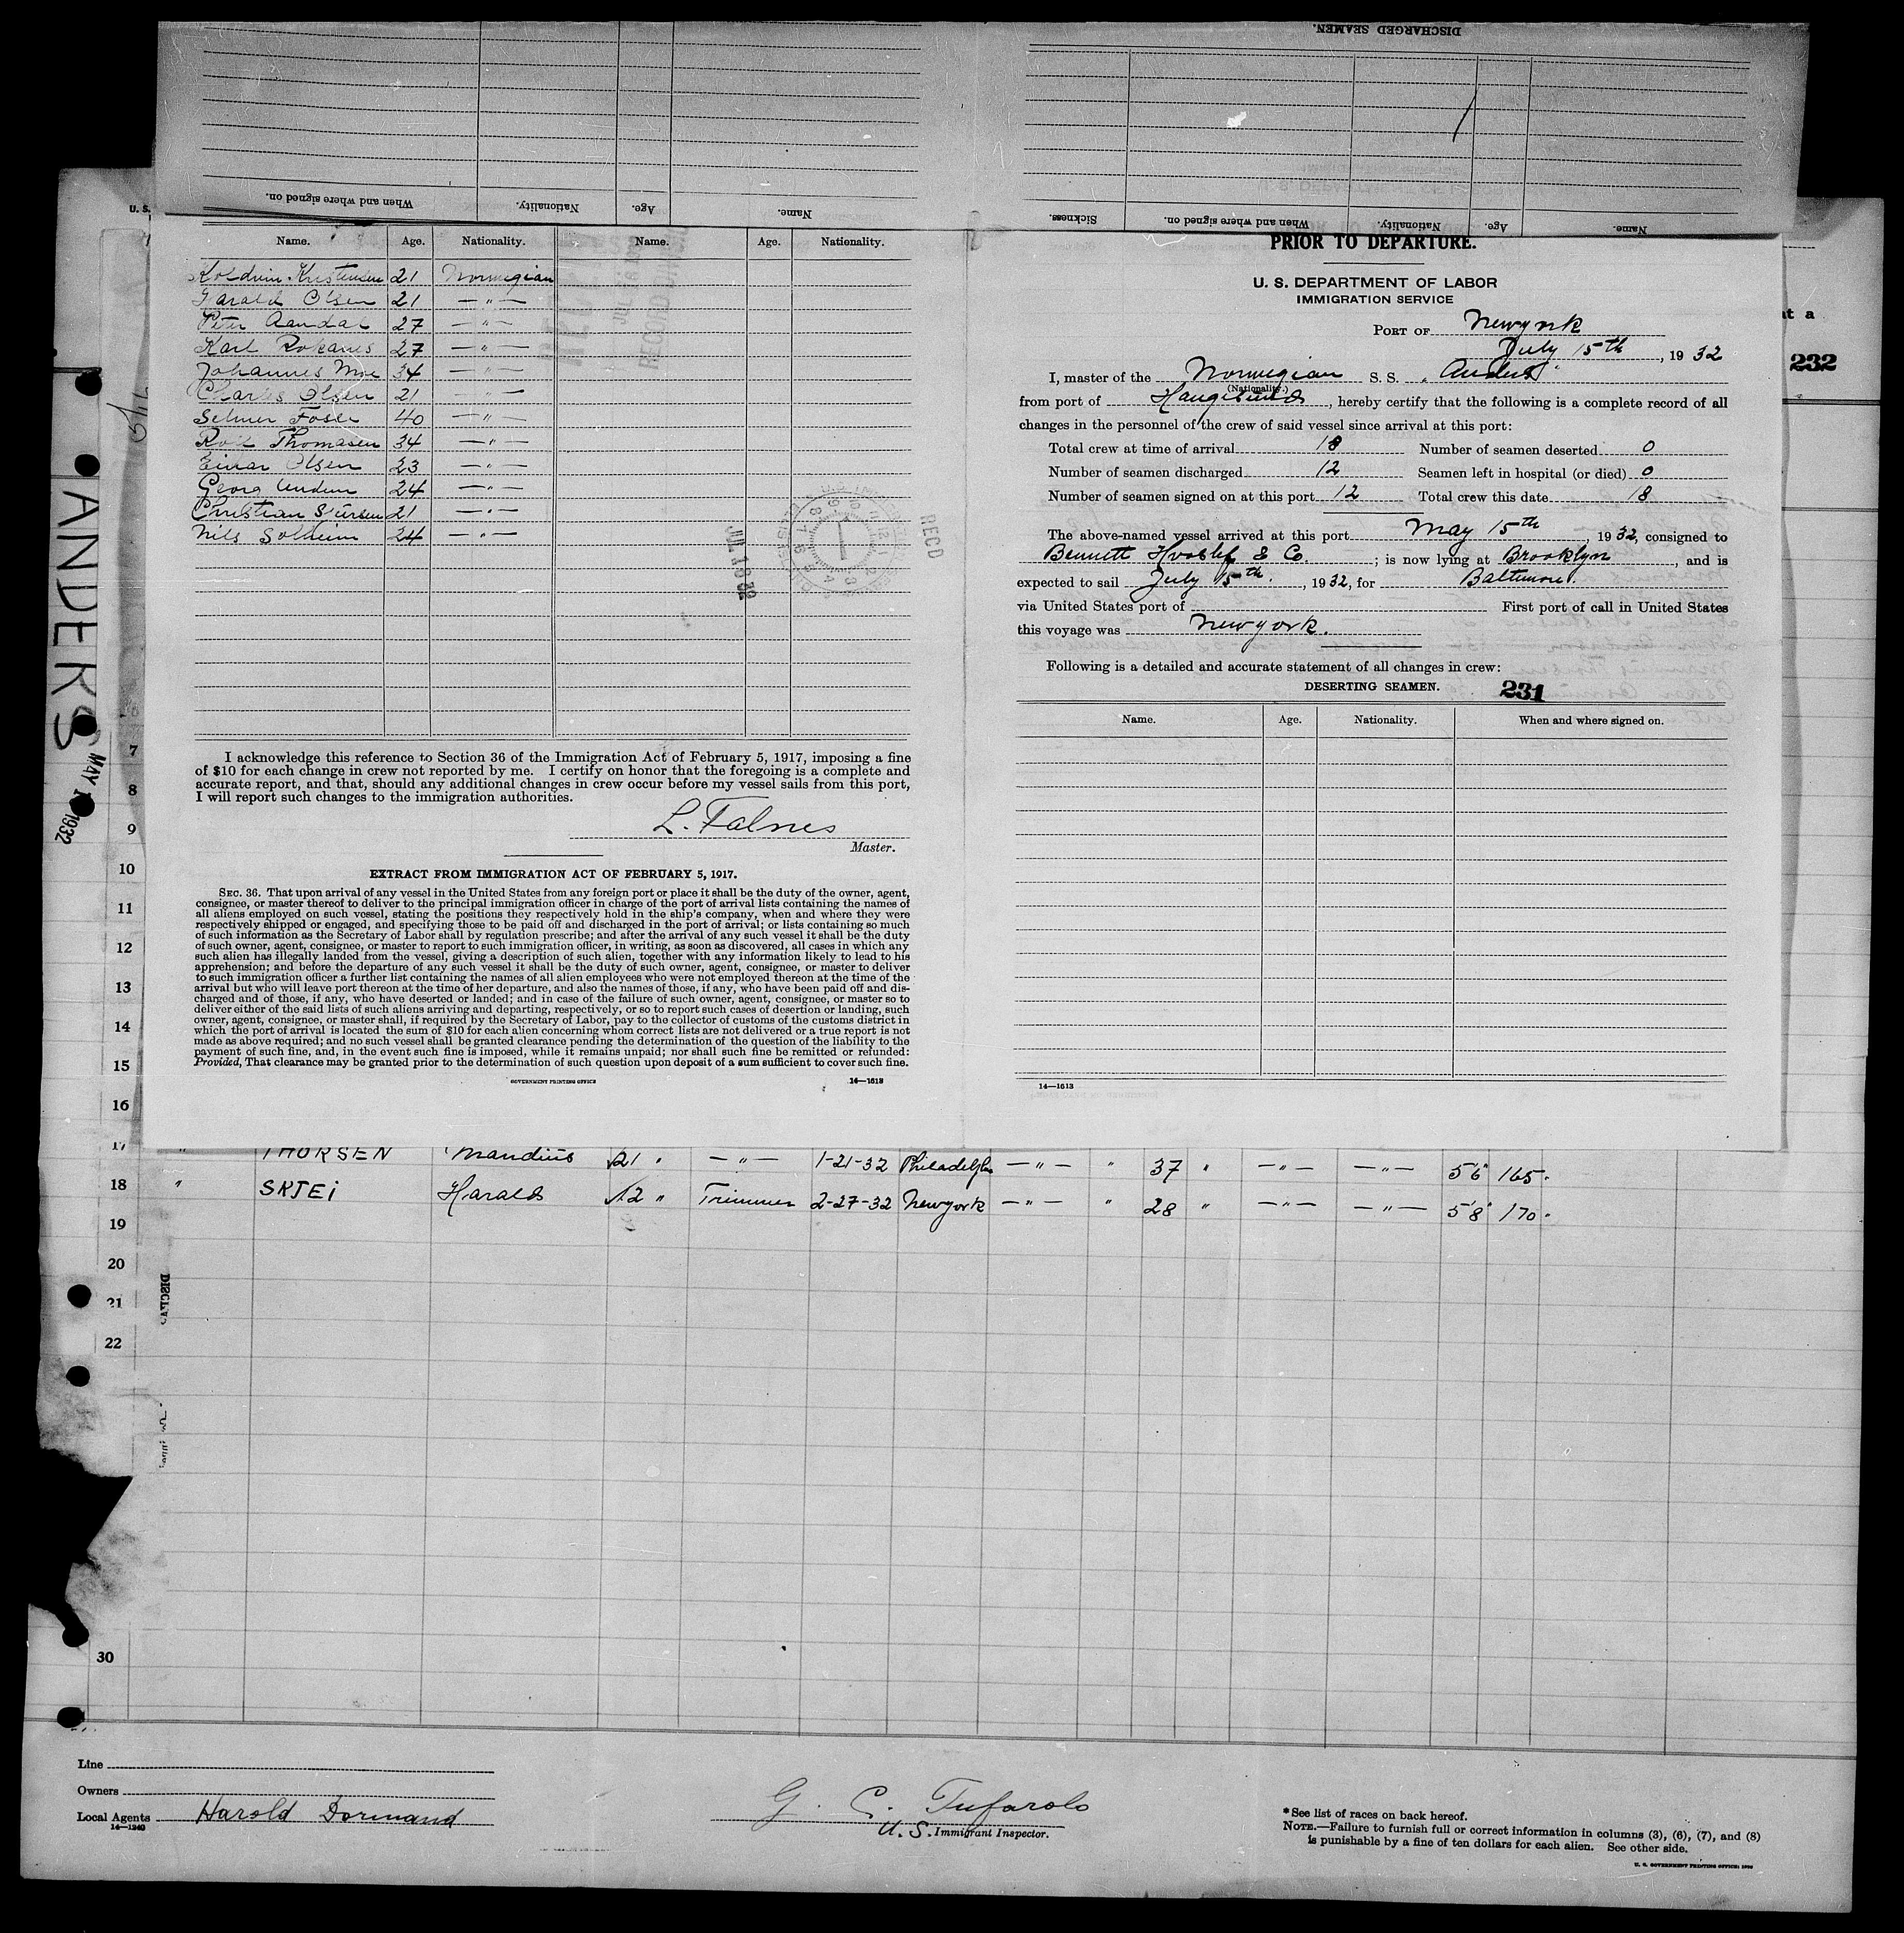 DISCHARGED SEAMEN.
When and where signed on. Nationality. Age. Name.
Sickness. When and where signed on. Nationality. Age. Name.
U. S.
Name. Age. Nationality. Name. Age. Nationality.
Koldvin Kristensen 21 Norwegian
Harald Olsen 21 — " —
Peter Aandal 27 — " —
Karl 27 — " —
Johannes Moe 34 — " —
Charles Olsen 21 — " —
Selmer Fosse 40 — " —
Thomasen 34 — " —
Einar Olsen 23 — " —
Georg 24 — " —
Christian 21 — " —
Nils Solheim 24 — " —
JUL 18 32
RECD
RECORD DIVISION
I acknowledge this reference to Section 36 of the Immigration Act of February 5, 1917, imposing a fine
of $10 for each change in crew not reported by me. I certify on honor that the foregoing is a complete and
accurate report, and that, should any additional changes in crew occur before my vessel sails from this port,
I will report such changes to the immigration authorities.
L. Falnes
Master.
EXTRACT FROM IMMIGRATION ACT OF FEBRUARY 5, 1917.
SEC. 36. That upon arrival of any vessel in the United States from any foreign port or place it shall be the duty of the owner, agent,
consignee, or master thereof to deliver to the principal immigration officer in charge of the port of arrival lists containing the names of
all aliens employed on such vessel, stating the positions they respectively hold in the ship's company, when and where they were
respectively shipped or engaged, and specifying those to be paid off and discharged in the port of arrival; or lists containing so much
of such information as the Secretary of Labor shall by regulation prescribe; and after the arrival of any such vessel it shall be the duty
of such owner, agent, consignee, or master to report to such immigration officer, in writing, as soon as discovered, all cases in which any
such alien has illegally landed from the vessel, giving a description of such alien, together with any information likely to lead to his
apprehension; and before the departure of any such vessel it shall be the duty of such owner, agent, consignee, or master to deliver
to such immigration officer a further list containing the names of all alien employees who were not employed thereon at the time of the
arrival but who will leave port thereon at the time of her departure, and also the names of those, if any, who have been paid off and dis-
charged and of those, if any, who have deserted or landed; and in case of the failure of such owner, agent, consignee, or master so to
deliver either of the said lists of such aliens arriving and departing, respectively, or so to report such cases of desertion or landing, such
owner, agent, consignee, or master shall, if required by the Secretary of Labor, pay to the collector of customs of the customs district in
which the port of arrival is located the sum of $10 for each alien concerning whom correct lists are not delivered or a true report is not
made as above required; and no such vessel shall be granted clearance pending the determination of the question of the liability to the
payment of such fine, and, in the event such fine is imposed, while it remains unpaid; nor shall such fine be remitted or refunded:
Provided, That clearance may be granted prior to the determination of such question upon deposit of a sum sufficient to cover such fine.
GOVERNMENT PRINTING OFFICE 14—1613
PRIOR TO DEPARTURE.
U. S. DEPARTMENT OF LABOR
IMMIGRATION SERVICE
PORT OF Newyork
July 15th, 1932
I, master of the Norwegian S. S. "Anders"
(Nationality.)
from port of Haugesund, hereby certify that the following is a complete record of all
changes in the personnel of the crew of said vessel since arrival at this port:
Total crew at time of arrival 18 Number of seamen deserted 0
Number of seamen discharged 12 Seamen left in hospital (or died) 0
Number of seamen signed on at this port 12 Total crew this date 18
The above-named vessel arrived at this port May 15th, 1932, consigned to
Bennett Hvoslef & Co. ; is now lying at Brooklyn, and is
expected to sail July 15th., 1932, for Baltimore.
via United States port of First port of call in United States
this voyage was Newyork.
Following is a detailed and accurate statement of all changes in crew:
DESERTING SEAMEN. 231
Name. Age. Nationality. When and where signed on.
14—1613
at a
232
ANDERS
MAY 1932
7
8
9
10
11
12
13
14
15
16
17 " THORSEN Mandius 21 " — " — 1-21-32 Philadelphia — " — " 37 " — " — — " — 5'6" 165
18 " SKJEI Harald 12 " Trimmer 2-27-32 Newyork — " — " 28 " — " — — " — 5'8" 170
19
20
21
22
30
Line
Owners
Local Agents Harold Dormand
14—1240
G. C. Tufarolo
U. S. Immigrant Inspector.
*See list of races on back hereof.
NOTE.—Failure to furnish full or correct information in columns (3), (6), (7), and (8)
is punishable by a fine of ten dollars for each alien. See other side.
U. S. GOVERNMENT PRINTING OFFICE: